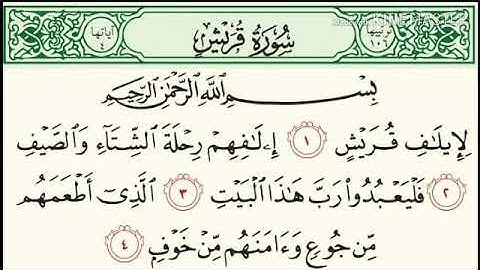 ترتيبها
١٠٦
سُورَةُ قُرَيْشٍ
آياتها
٤
KINEMASTER
بِسْمِ اللَّهِ الرَّحْمَٰنِ الرَّحِيمِ
لِإِيلَٰفِ قُرَيْشٍ ١ إِۦلَٰفِهِمْ رِحْلَةَ الشِّتَآءِ وَالصَّيْفِ
٢ فَلْيَعْبُدُوا۟ رَبَّ هَٰذَا الْبَيْتِ ٣ الَّذِىٓ أَطْعَمَهُم
مِّن جُوعٍ وَءَامَنَهُم مِّنْ خَوْفٍۭ ٤